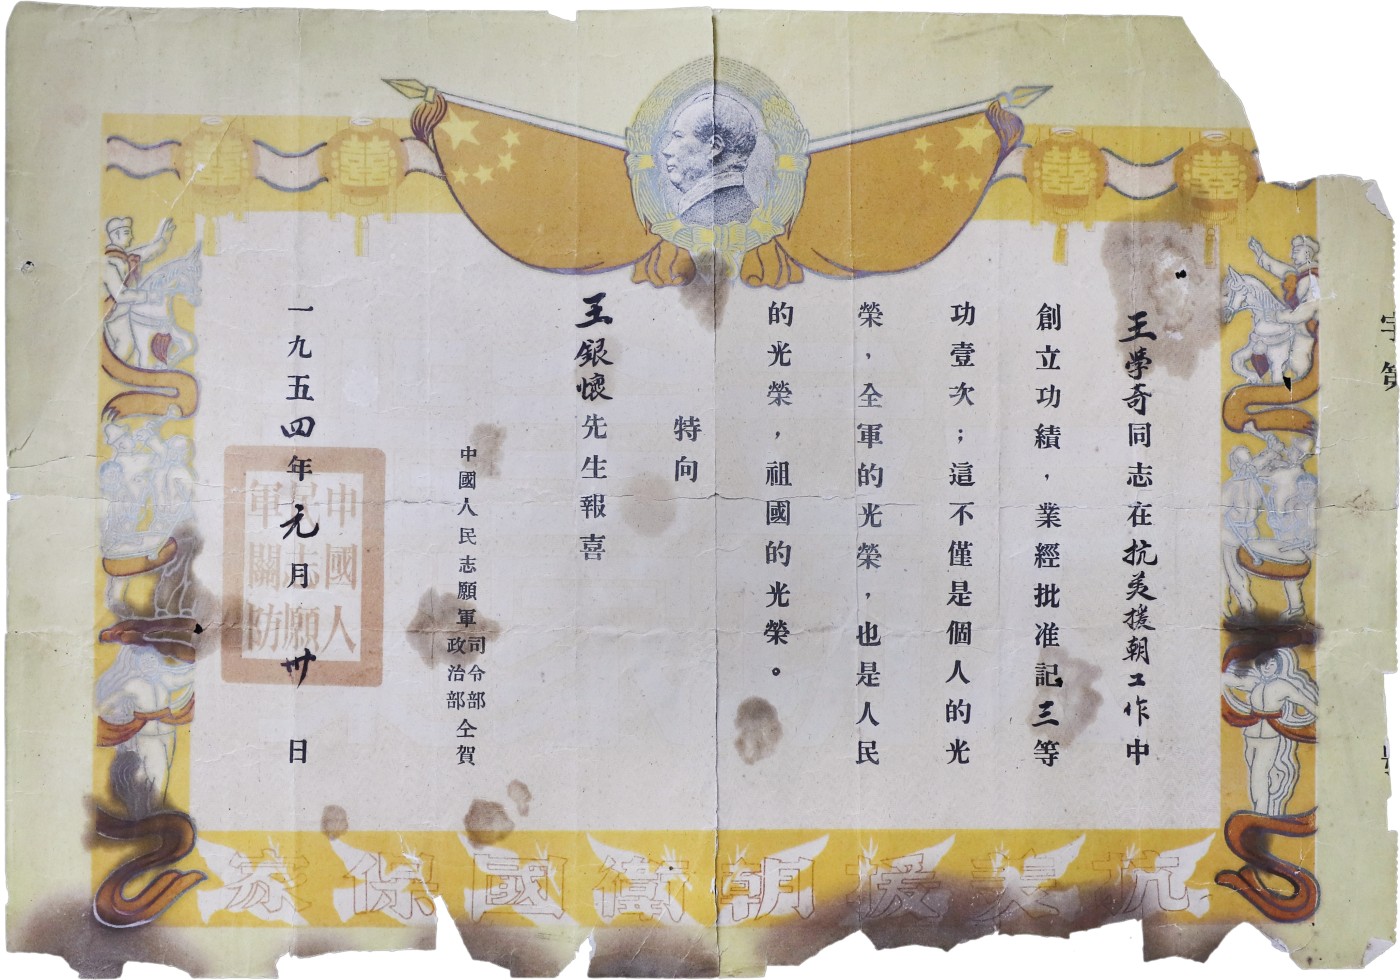 字第
號
王學奇同志在抗美援朝工作中
創立功績，業經批准記三等
功壹次；這不僅是個人的光
榮，全軍的光榮，也是人民
的光榮，祖國的光榮。
特向
王銀懷先生報喜
中國人民志願軍司令部政治部仝賀
一九五四年元月卅日
中國人民志願軍關防
囍
囍
囍
囍
抗美援朝衛國保家